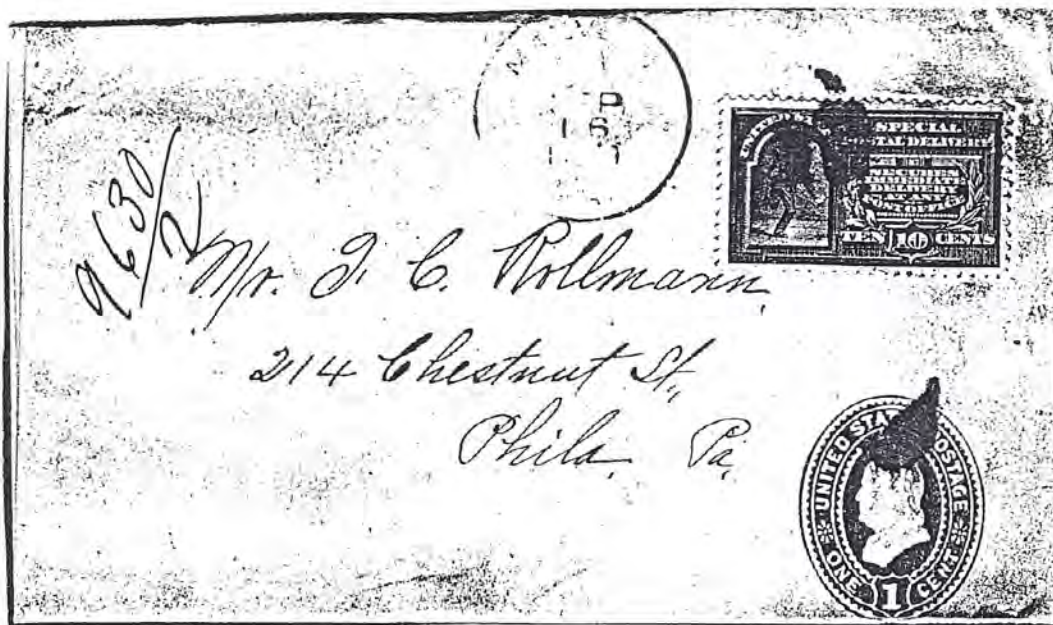 P
15
9630/2
UNITED
SPECIAL
POSTAL DELIVERY
SECURES
IMMEDIATE
DELIVERY
AT ANY
TEN 10 CENTS
Mr. J. C. Rollmann,
214 Chestnut St.,
Phila, Pa.
UNITED STATES POSTAGE
ONE 1 CENT